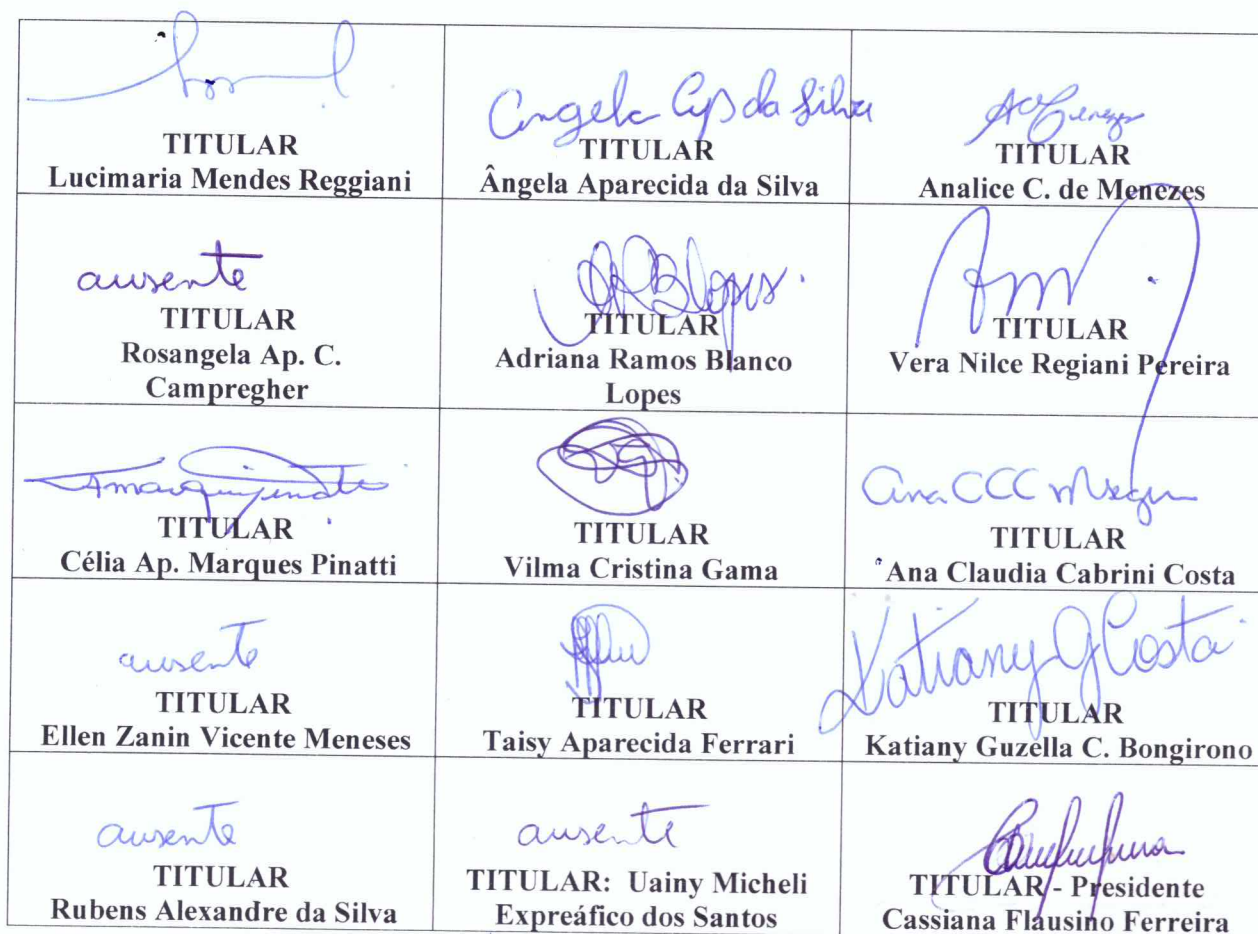 Angela Ap da Silva
TITULAR
Lucimaria Mendes Reggiani
TITULAR
Ângela Aparecida da Silva
TITULAR
Analice C. de Menezes
ausente
TITULAR
Rosangela Ap. C.
Campregher
TITULAR
Adriana Ramos Blanco
Lopes
TITULAR
Vera Nilce Regiani Pereira
TITULAR
Célia Ap. Marques Pinatti
TITULAR
Vilma Cristina Gama
Ana CCC
TITULAR
Ana Claudia Cabrini Costa
ausente
TITULAR
Ellen Zanin Vicente Meneses
TITULAR
Taisy Aparecida Ferrari
Katiany G Costa
TITULAR
Katiany Guzella C. Bongirono
ausente
TITULAR
Rubens Alexandre da Silva
ausente
TITULAR: Uainy Micheli
Expreáfico dos Santos
TITULAR - Presidente
Cassiana Flausino Ferreira